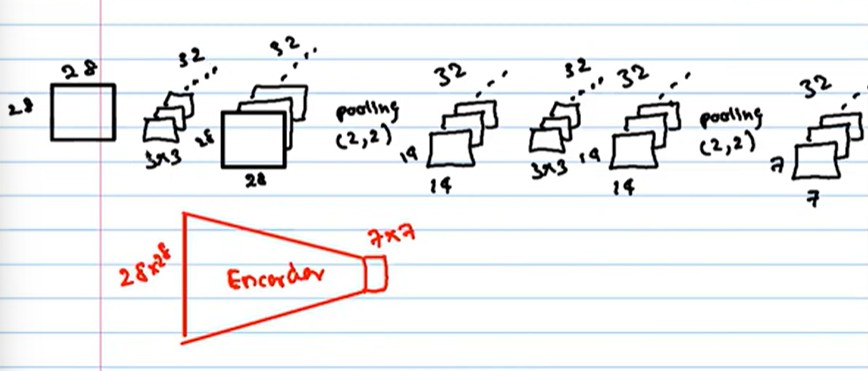 28
28
32
3x3
32
28
28
pooling
(2,2)
32
14
14
32
3x3
32
14
14
pooling
(2,2)
32
7
7
28x28
Encorder
7x7